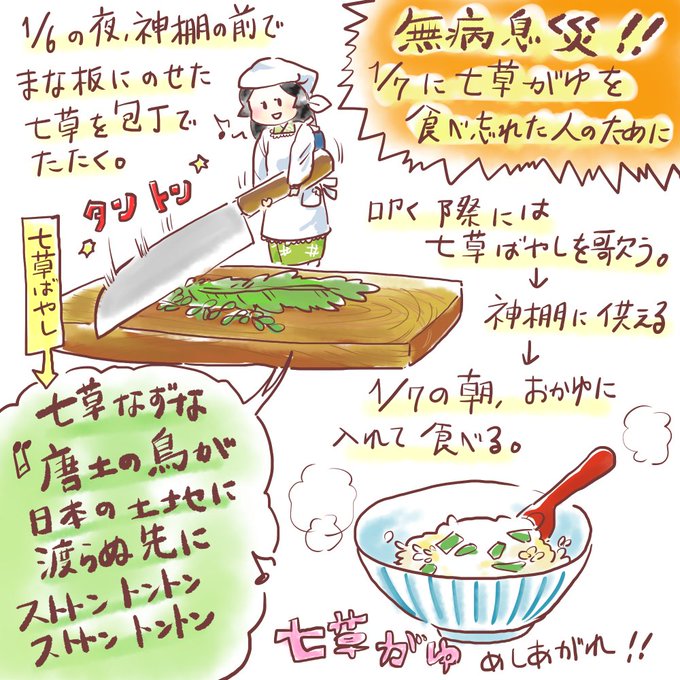 1/6の夜、神棚の前で
まな板にのせた
七草を包丁で
たたく。
無病息災!!
1/7に七草がゆを
食べ忘れた人のために
タン トン
七草ばやし
叩く際には
七草ばやしを歌う。
↓
神棚に供える
↓
1/7の朝、おかゆに
入れて食べる。
七草なずな
『唐土の鳥が
日本の土地に
渡らぬ先に
ストトン トントン
ストトン トントン
七草がゆ めしあがれ!!